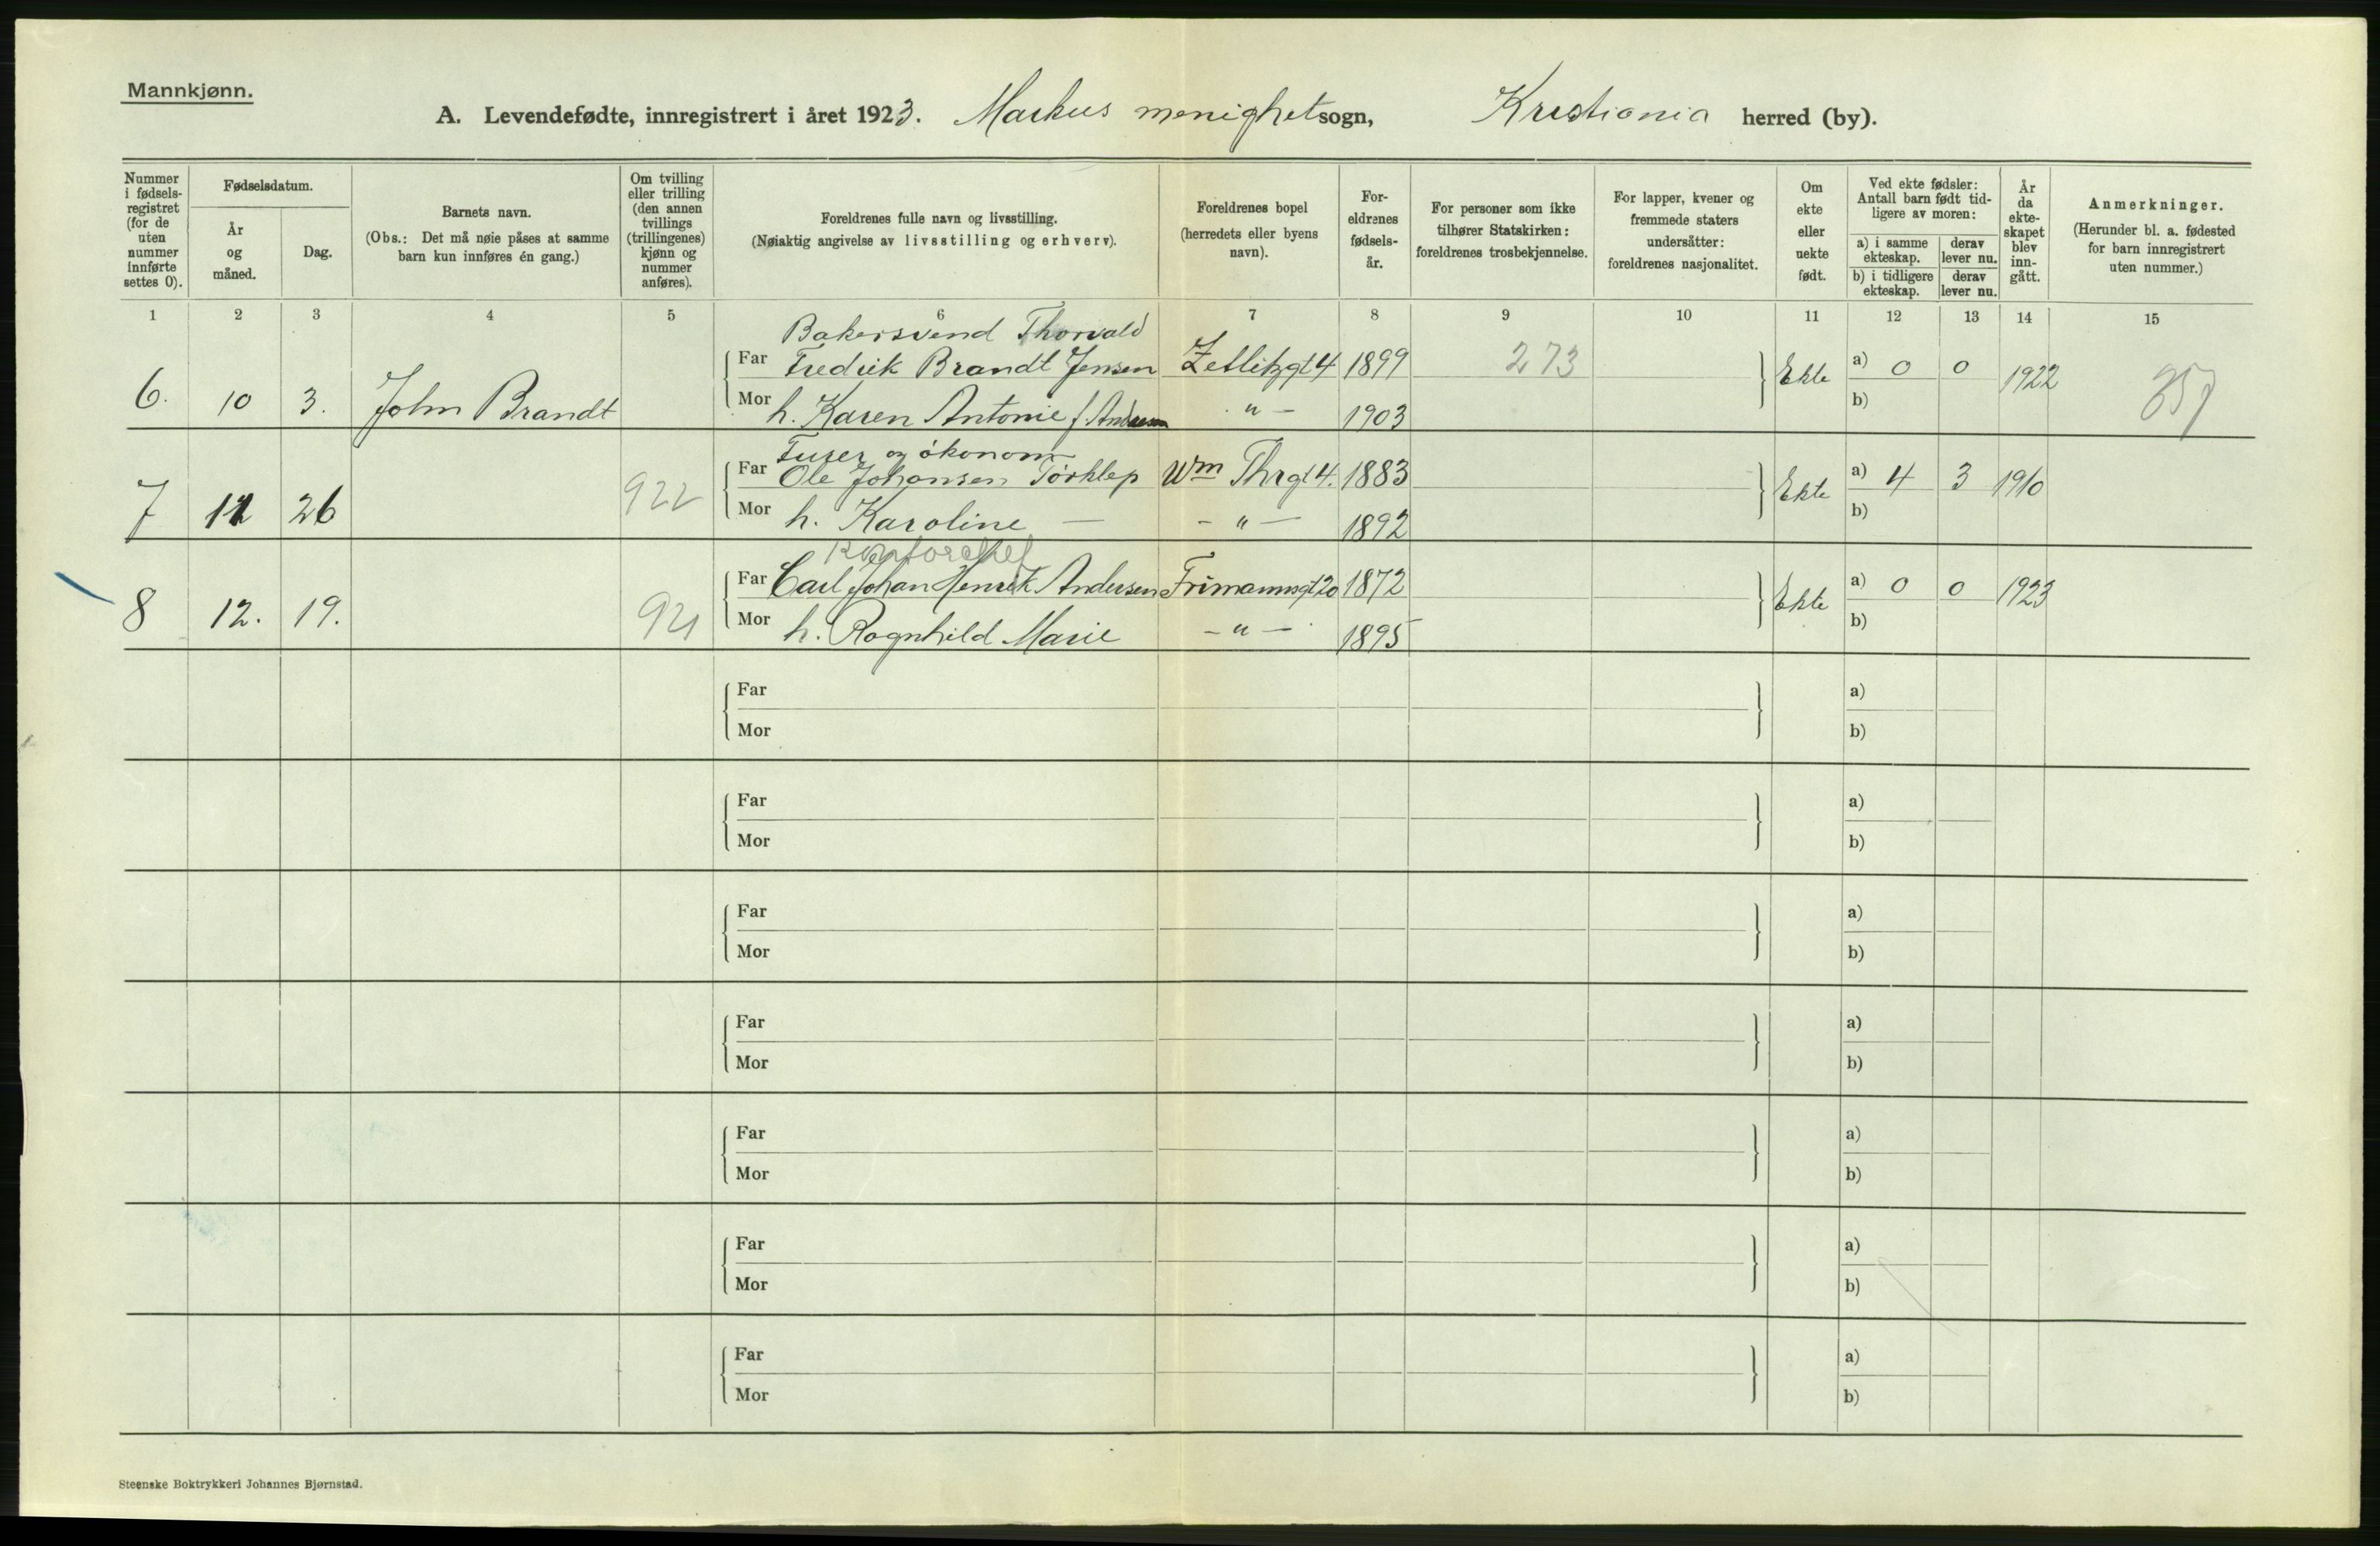 Mannkjønn.
A. Levendefødte, innregistrert i året 1923. Markus menighetsogn, Kristiania herred (by).
Nummer i fødsels-registret (for de uten nummer innførte settes 0).
Fødselsdatum.
År og måned.
Dag.
Barnets navn.
(Obs.: Det må nøie påses at samme barn kun innføres én gang.)
Om tvilling eller trilling (den annen tvillings (trillingenes) kjønn og nummer anføres).
Foreldrenes fulle navn og livsstilling.
(Nøiaktig angivelse av livsstilling og erhverv).
Foreldrenes bopel (herredets eller byens navn).
For-eldrenes fødsels-år.
For personer som ikke tilhører Statskirken: foreldrenes trosbekjennelse.
For lapper, kvener og fremmede staters undersåtter: foreldrenes nasjonalitet.
Om ekte eller uekte født.
Ved ekte fødsler: Antall barn født tid-ligere av moren:
a) i samme ekteskap. derav lever nu.
b) i tidligere ekteskap. derav lever nu.
År da ekte-skapet blev inn-gått.
Anmerkninger.
(Herunder bl. a. fødested for barn innregistrert uten nummer.)
1 2 3 4 5 6 7 8 9 10 11 12 13 14 15
Bakersvend Thorvald
6. 10 3. John Brandt Far Fredrik Brandt Jensen Zetlitzgt 4 1899 273 Ekte a) 0 0 1922 357
Mor h. Karen Antonie f. Andresen " 1903 b)
og økonom
7 11 26 922 Far Ole Johansen Torklep Wm Thrgt 4. 1883 Ekte a) 4 3 1910
Mor h. Karoline — - " - 1892 b)
Kontorchef
8 12. 19. 921 Far Carl Johan Henrik Andersen Frimannsgt 20 1872 Ekte a) 0 0 1923
Mor h. Ragnhild Marie - " - 1895 b)
Far a)
Mor b)
Far a)
Mor b)
Far a)
Mor b)
Far a)
Mor b)
Far a)
Mor b)
Far a)
Mor b)
Far a)
Mor b)
Steenske Boktrykkeri Johannes Bjørnstad.